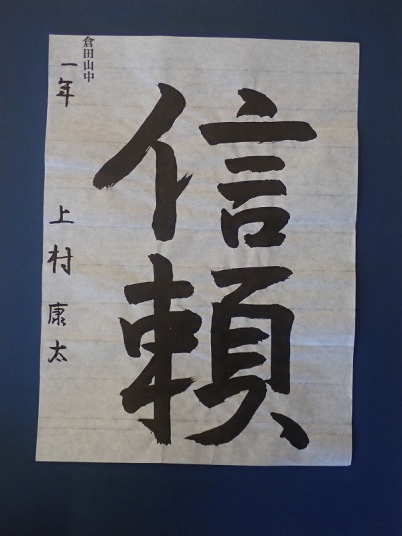 信頼
倉田山中
一年 上村康太